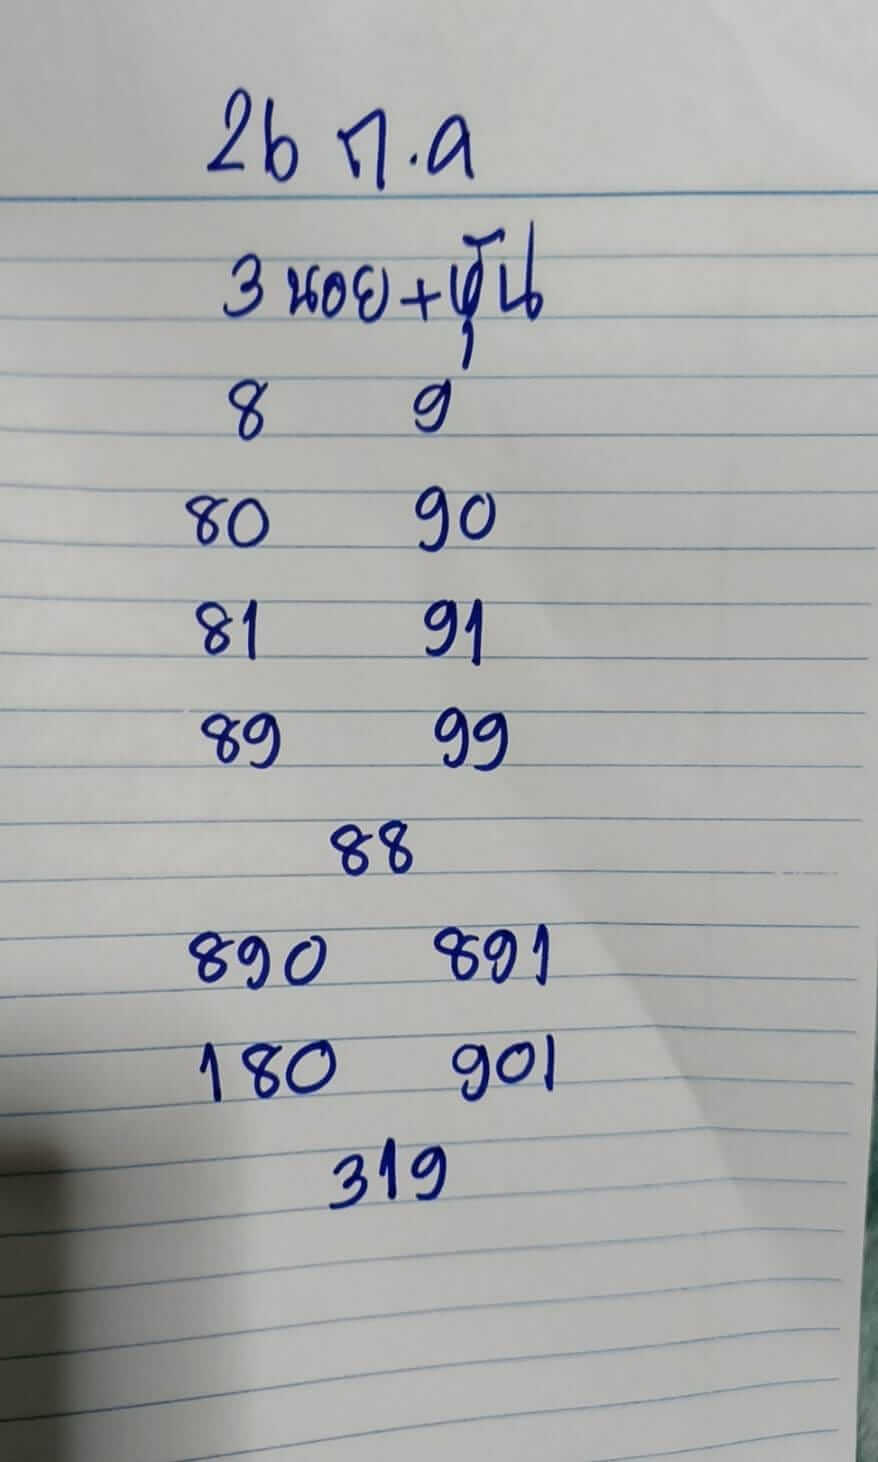 26 ก.ค
3 นอย+หุ้น
8 9
80 90
81 91
89 99
88
890 891
180 901
319